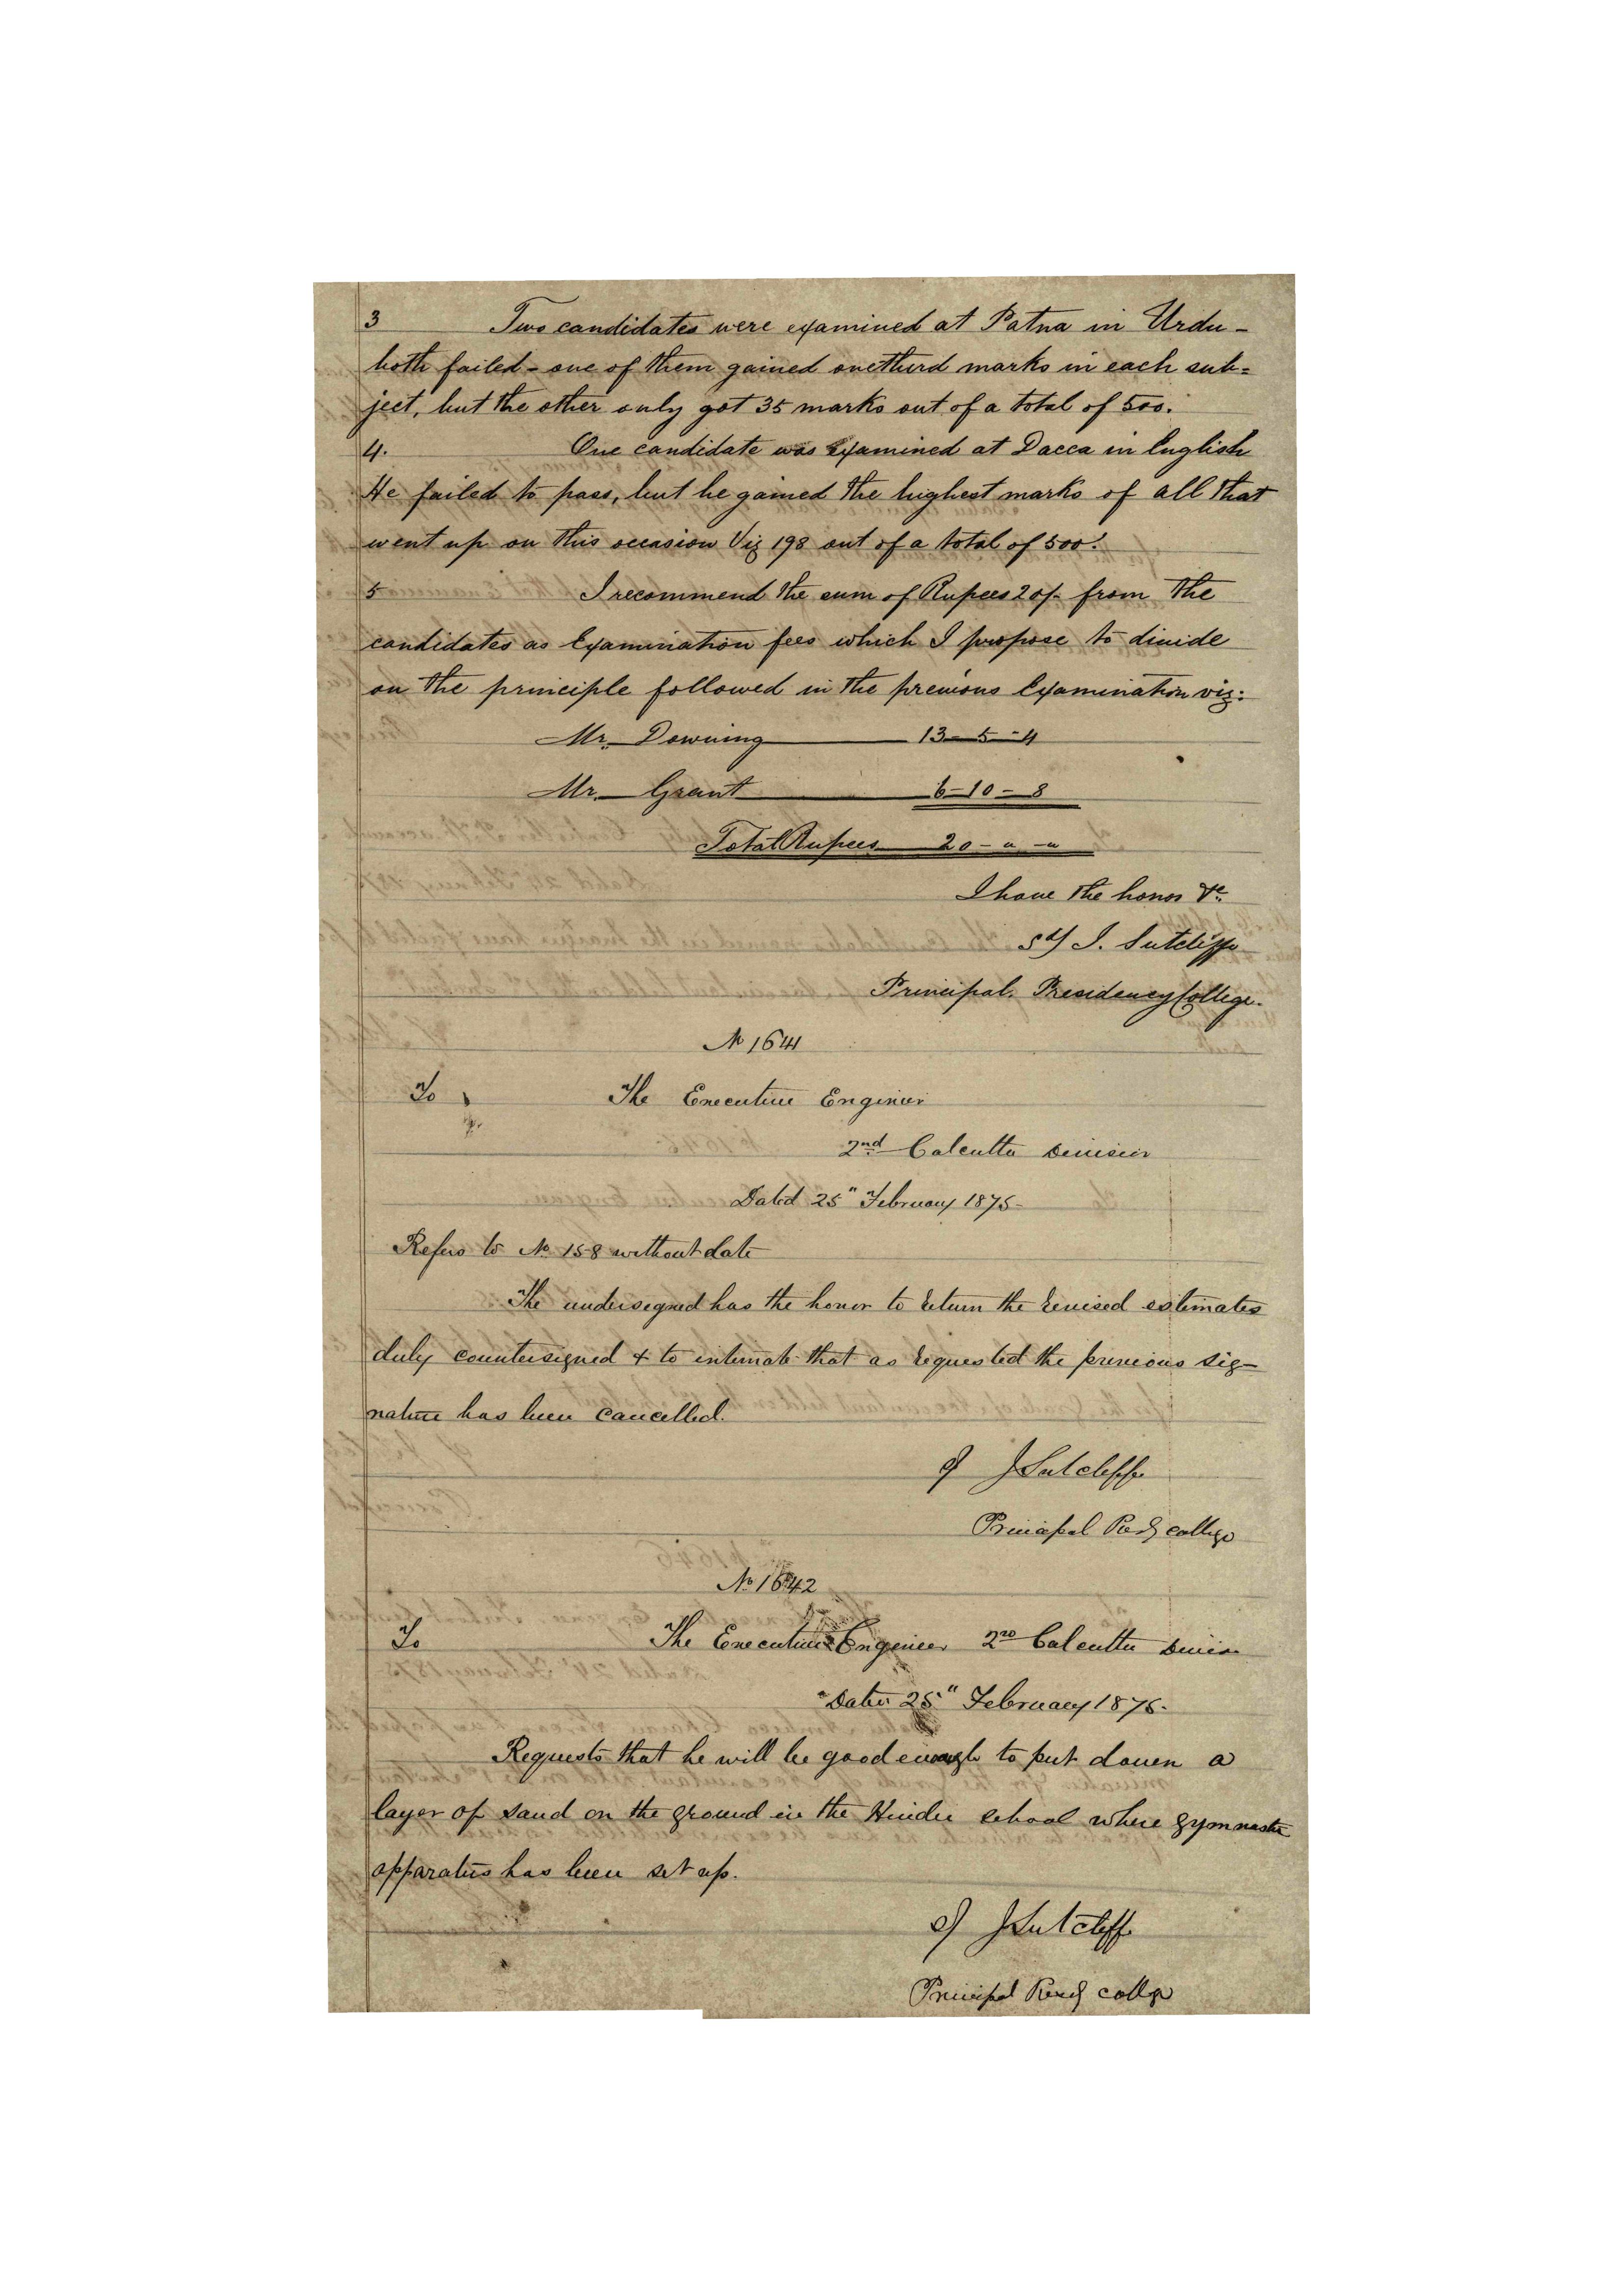 3 Two candidates were examined at Patna in Urdu -
both failed - one of them gained onethird marks in each sub=
ject, but the other only got 35 marks out of a total of 500.
4. One candidate was Examined at Dacca in English
He failed to pass, but he gained the highest marks of all that
went up on this occasion Viz 198 out of a total of 500.
5 I recommend the sum of Rupees 20/- from the
candidates as Examination fees which I propose to divide
on the principle followed in the previous Examination viz:
Mr. Downing 13-5-4
Mr. Grant 6-10-8
Total Rupees 20-"-"
I have the honor &c.
Sd/ J. Sutcliffe
Principal, Presidency College.
No 1641
To The Executive Engineer
2nd Calcutta Division
Dated 25" February 1875-
Refers to No 158 without date
The undersigned has the honor to return the revised estimates
duly countersigned & to intimate that as requested the previous sig-
nature has been cancelled.
J Sutcliffe
Principal Presy college
No 1642
To The Executive Engineer 2nd Calcutta Division
Dated 25" February 1875-
Requests that he will be good enough to put down a
layer of sand on the ground in the Hindu school where gymnastic
apparatus has been set up.
J Sutcliffe
Principal Presy college